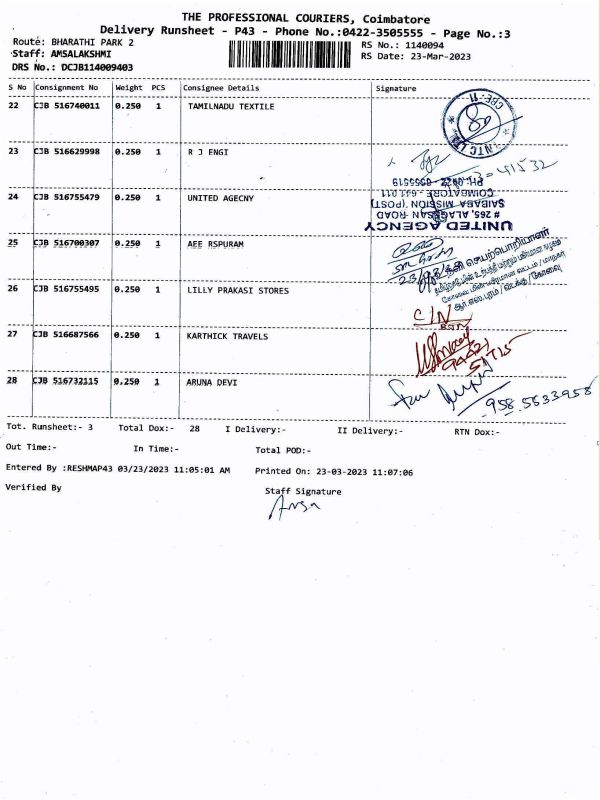 THE PROFESSIONAL COURIERS, Coimbatore
Delivery Runsheet - P43 - Phone No.:0422-3505555 - Page No.:3
Route: BHARATHI PARK 2
RS No.: 1140094
Staff: AMSALAKSHMI
RS Date: 23-Mar-2023
DRS No.: DCJB114009403
S No Consignment No Weight PCS Consignee Details Signature
22 CJB 516740011 0.250 1 TAMILNADU TEXTILE
CBE - 11
23 CJB 516629998 0.250 1 R J ENGI
41532
24 CJB 516755479 0.250 1 UNITED AGECNY
UNITED AGENCY
# 265, ALAGESAN ROAD
SAIBABA MISSION (POST)
COIMBATORE - 641 011
25 CJB 516700307 0.250 1 AEE RSPURAM
26 CJB 516755495 0.250 1 LILLY PRAKASI STORES
C/N
27 CJB 516687566 0.250 1 KARTHICK TRAVELS
28 CJB 516732115 0.250 1 ARUNA DEVI
958 5533958
Tot. Runsheet:- 3 Total Dox:- 28 I Delivery:- II Delivery:- RTN Dox:-
Out Time:- In Time:- Total POD:-
Entered By :RESHMAP43 03/23/2023 11:05:01 AM Printed On: 23-03-2023 11:07:06
Verified By Staff Signature
Amsa